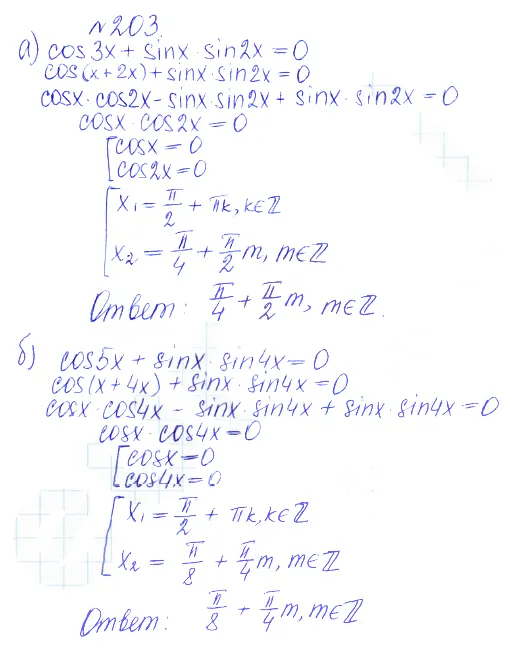 №203.
а) cos3x + sinx · sin2x = 0
cos(x + 2x) + sinx · sin2x = 0
cosx · cos2x − sinx · sin2x + sinx · sin2x = 0
cosx · cos2x = 0
[cosx = 0
cos2x = 0
[x₁ = π/2 + πk, k∈ℤ
x₂ = π/4 + π/2 m, m∈ℤ
Ответ: π/4 + π/2 m, m∈ℤ.
б) cos5x + sinx · sin4x = 0
cos(x + 4x) + sinx · sin4x = 0
cosx · cos4x − sinx · sin4x + sinx · sin4x = 0
cosx · cos4x = 0
[cosx = 0
cos4x = 0
[x₁ = π/2 + πk, k∈ℤ
x₂ = π/8 + π/4 m, m∈ℤ
Ответ: π/8 + π/4 m, m∈ℤ